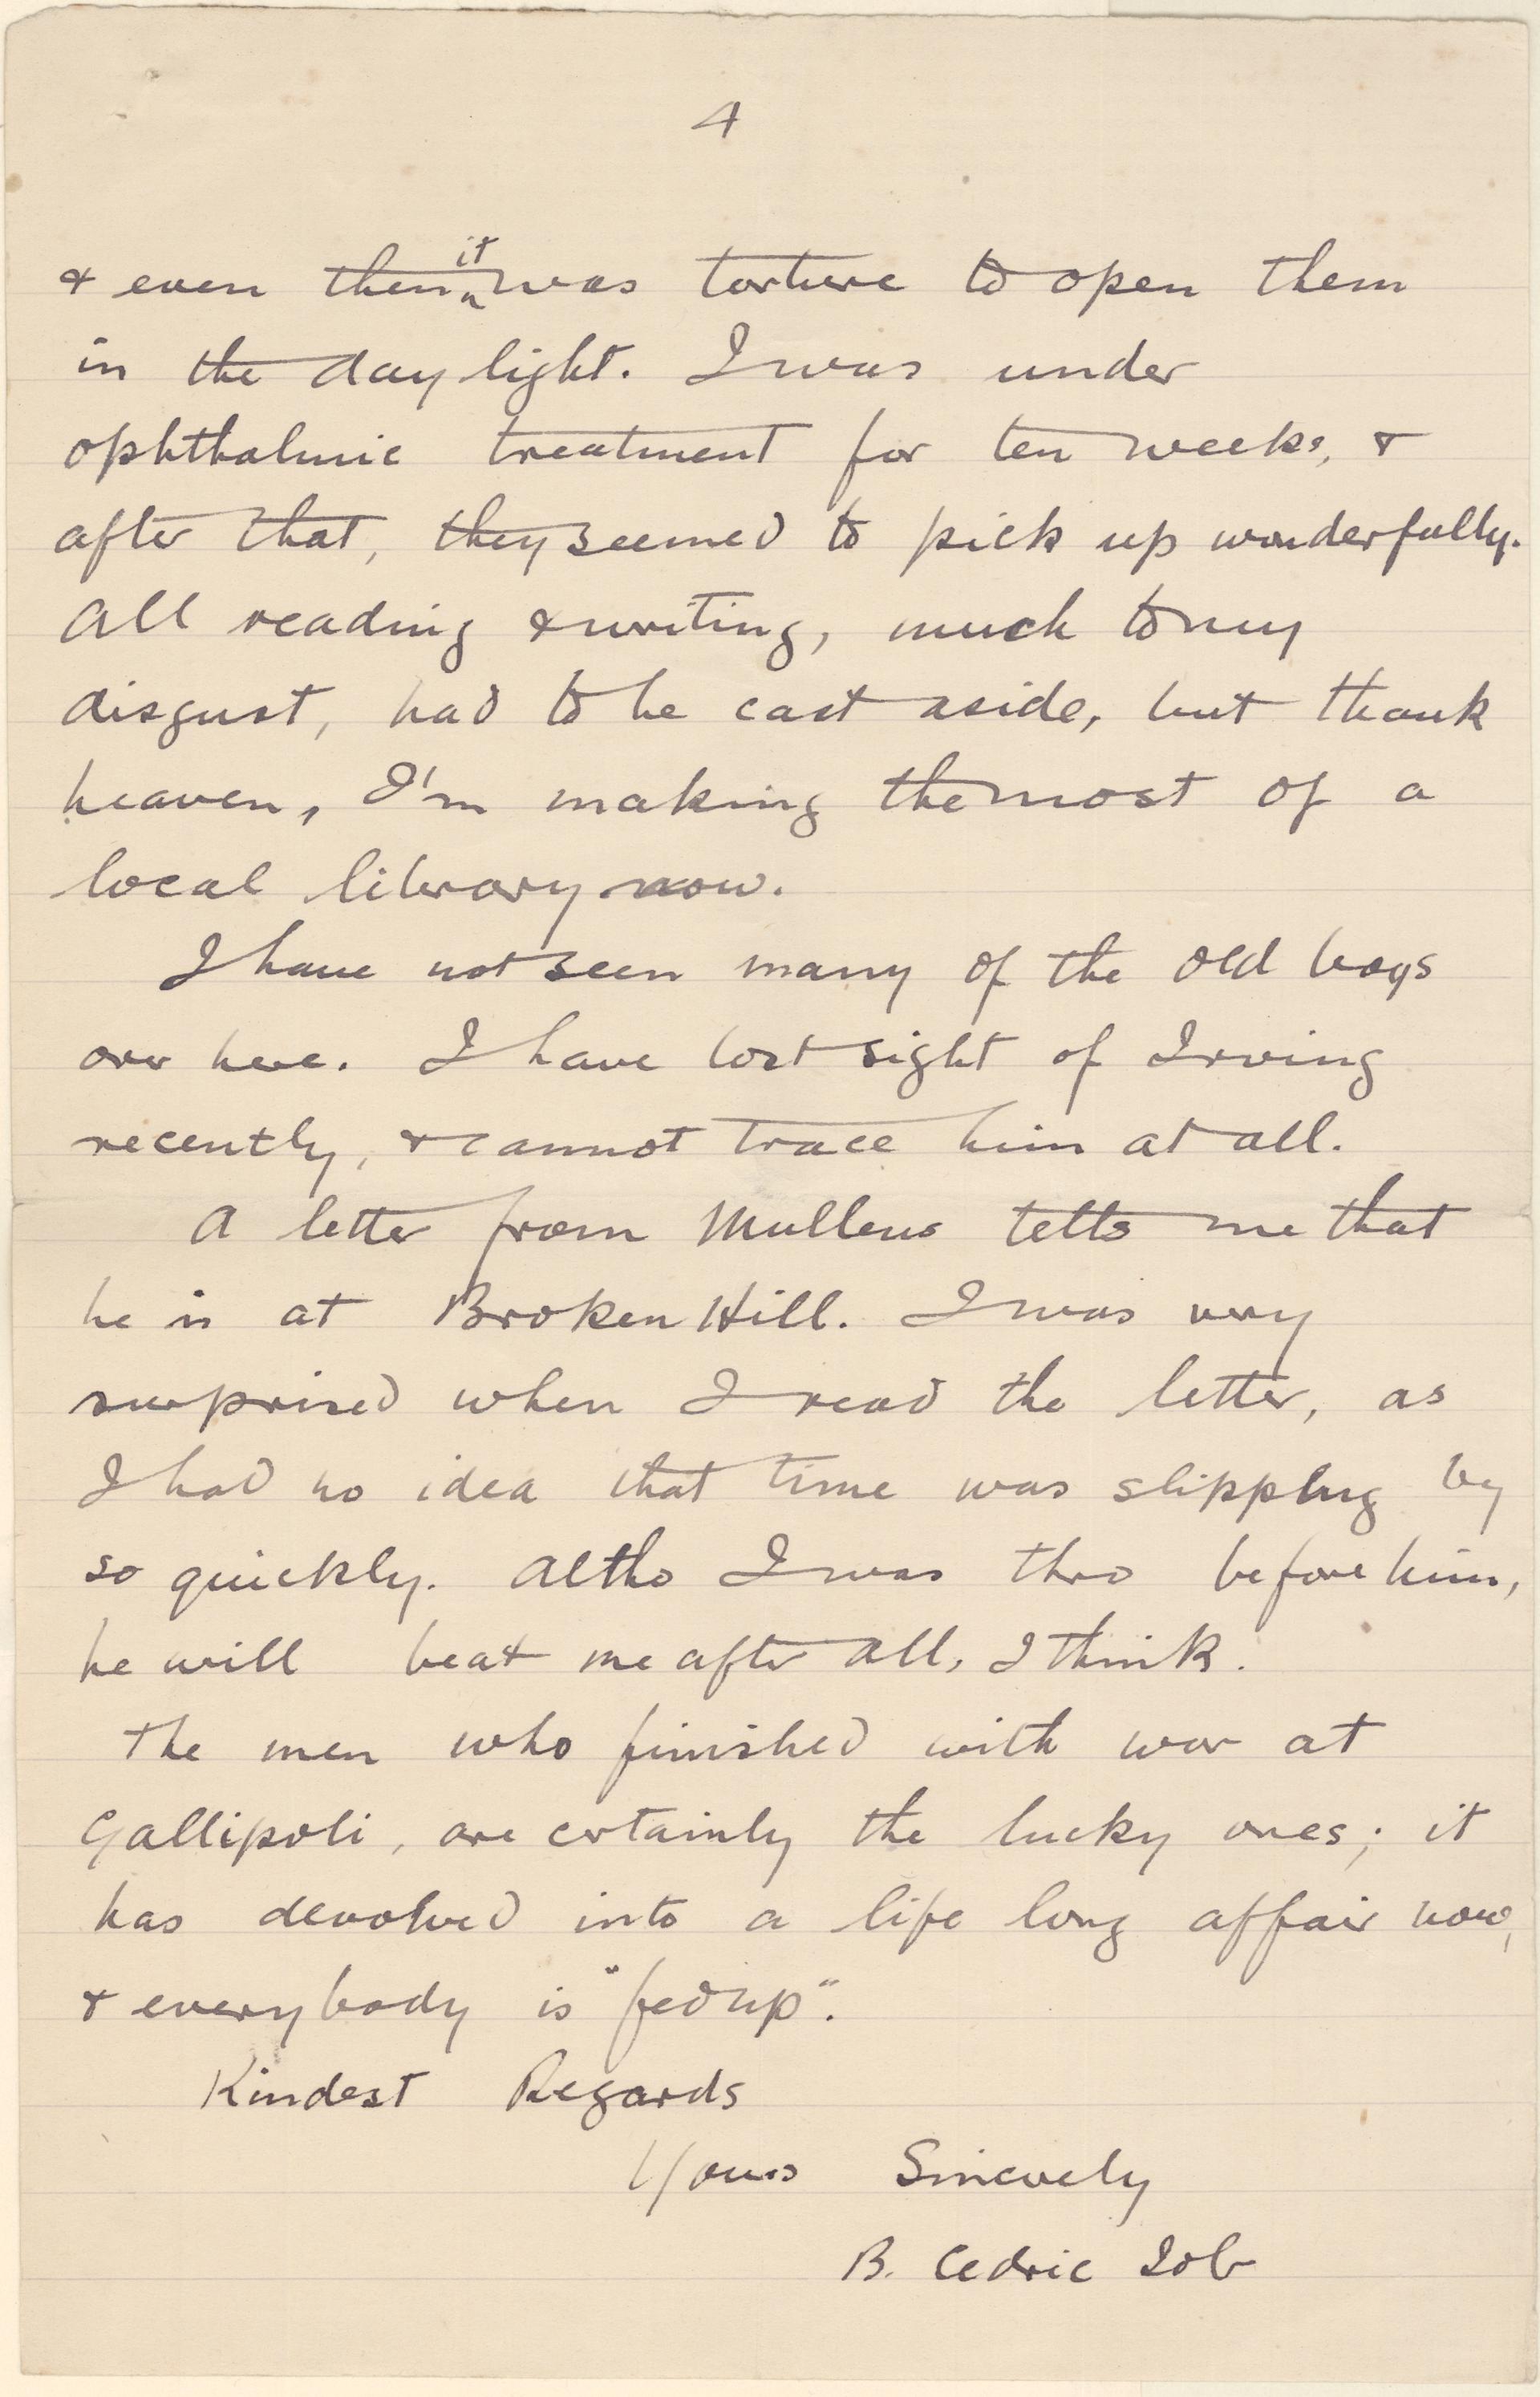 4
& even then it was torture to open them
in the day light. I was under
ophthalmic treatment for ten weeks, &
after that, they seemed to pick up wonderfully.
All reading & writing, much to my
disgust, had to be cast aside, but thank
heaven, I'm making the most of a
local library now.
I have not seen many of the old boys
over here. I have lost sight of Irving
recently, & cannot trace him at all.
A letter from Mullens tells me that
he is at Broken Hill. I was very
surprised when I read the letter, as
I had no idea that time was slipping by
so quickly. Altho I was thro before him,
he will beat me after all, I think.
The men who finished with war at
Gallipoli, are certainly the lucky ones; it
has devolved into a life long affair now,
& everybody is "fed up".
Kindest Regards
Yours Sincerely
B. Cedric Job